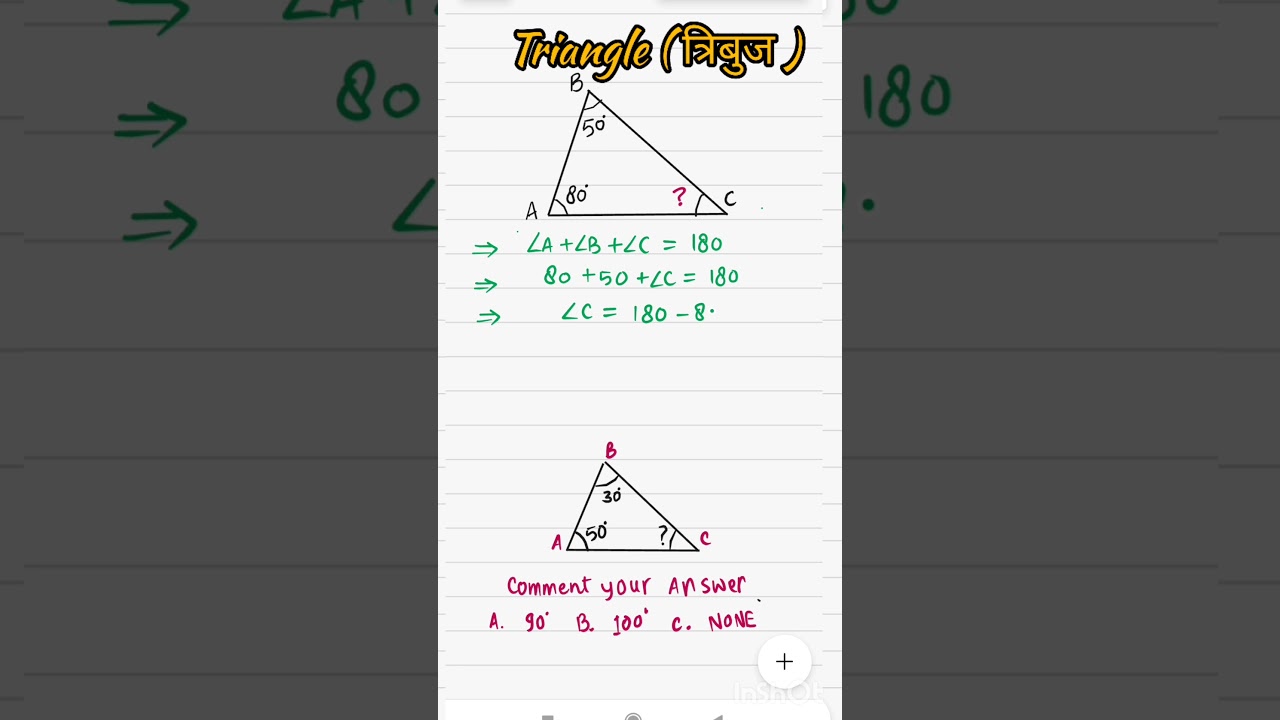 Triangle (त्रिबुज)
B
50°
80°
?
A
C
⇒ ∠A + ∠B + ∠C = 180
⇒ 80 + 50 + ∠C = 180
⇒ ∠C = 180 - 8
B
30°
50°
?
A
C
Comment your Answer
A. 90° B. 100° C. NONE
InShOt
∠A + ∠
⇒ 80
180
⇒ ∠